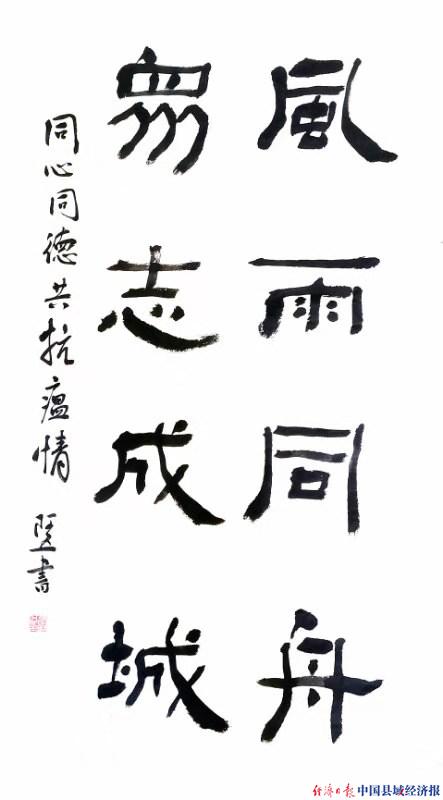 風雨同舟
眾志成城
同心同德共抗瘟情
書
经济日报 中国县域经济报